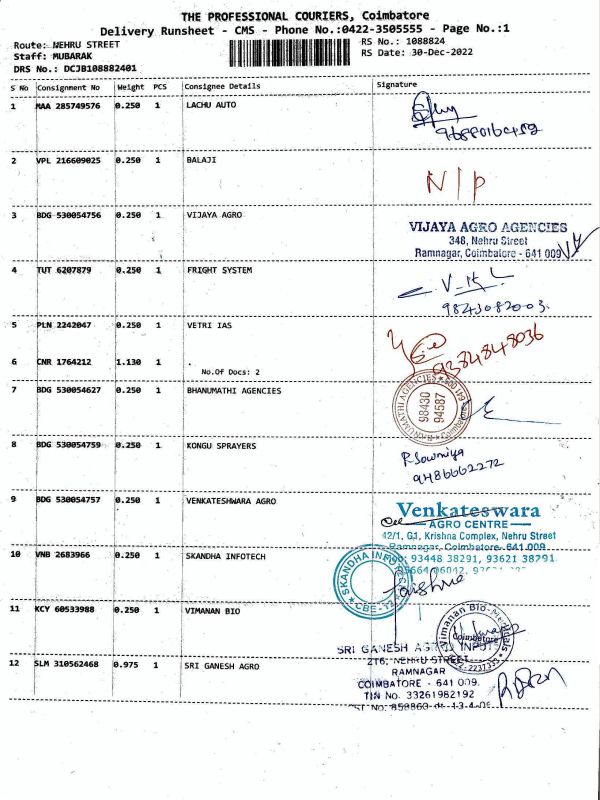 THE PROFESSIONAL COURIERS, Coimbatore
Delivery Runsheet - CMS - Phone No.:0422-3505555 - Page No.:1
Route: NEHRU STREET
RS No.: 1088824
Staff: MUBARAK
RS Date: 30-Dec-2022
DRS No.: DCJB108882401
S No Consignment No Weight PCS Consignee Details Signature
1 MAA 285749576 0.250 1 LACHU AUTO
2 VPL 216609025 0.250 1 BALAJI
N/P
3 BDG 530054756 0.250 1 VIJAYA AGRO
VIJAYA AGRO AGENCIES
348, Nehru Street
Ramnagar, Coimbatore - 641 009
4 TUT 6207879 0.250 1 FRIGHT SYSTEM
9843082003
5 PLN 2242047 0.250 1 VETRI IAS
9384848036
6 CNR 1764212 1.130 1 .
No.Of Docs: 2
7 BDG 530054627 0.250 1 BHANUMATHI AGENCIES
BHANUMATHI AGENCIES
98430
94587
Coimbatore
8 BDG 530054759 0.250 1 KONGU SPRAYERS
P. Sowmiya
9486662272
9 BDG 530054757 0.250 1 VENKATESHWARA AGRO
Venkateswara
AGRO CENTRE
42/1, G1, Krishna Complex, Nehru Street
Ramnagar, Coimbatore-641 009
93448 38291, 93621 38291
10 VNB 2683966 0.250 1 SKANDHA INFOTECH
SKANDHA
CBE-12
11 KCY 60533988 0.250 1 VIMANAN BIO
Vimanan Bio
Coimbatore
12 SLM 310562468 0.975 1 SRI GANESH AGRO
SRI GANESH AGRO INPUTS
216, NEHRU STREET
RAMNAGAR
COIMBATORE - 641 009.
TIN No. 33261982192